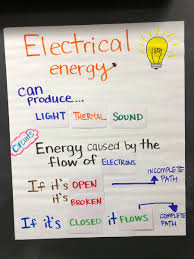 Electrical
energy
can
produce...
LIGHT THERMAL SOUND
Circuits
Energy caused by the
flow of ELECTRONS
INCOMPLETE
PATH
If it's OPEN
it's BROKEN
If it's CLOSED it FLOWS
COMPLETE
PATH